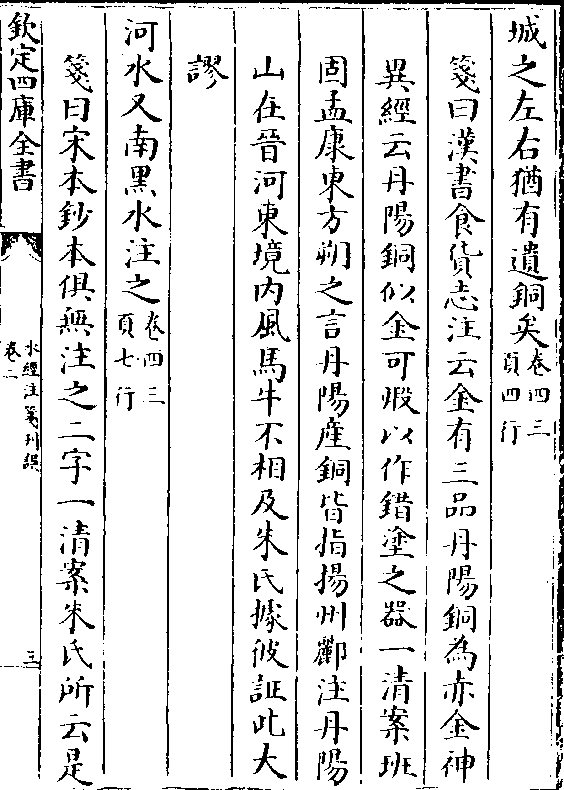 城之左右猶有遺銅矣卷四三頁四行
箋曰漢書食貨志注云金有三品丹陽銅為赤金神
異經云丹陽銅似金可煅以作錯塗之器一清案班
固孟康東方朔之言丹陽産銅皆指揚州酈注丹陽
山在晉河東境内風馬牛不相及朱氏據彼証此大
謬
河水又南黑水注之卷四三頁七行
箋曰宋本鈔本俱無注之二字一清案朱氏所云是
欽定四庫全書
水經注箋刊誤
卷二
三